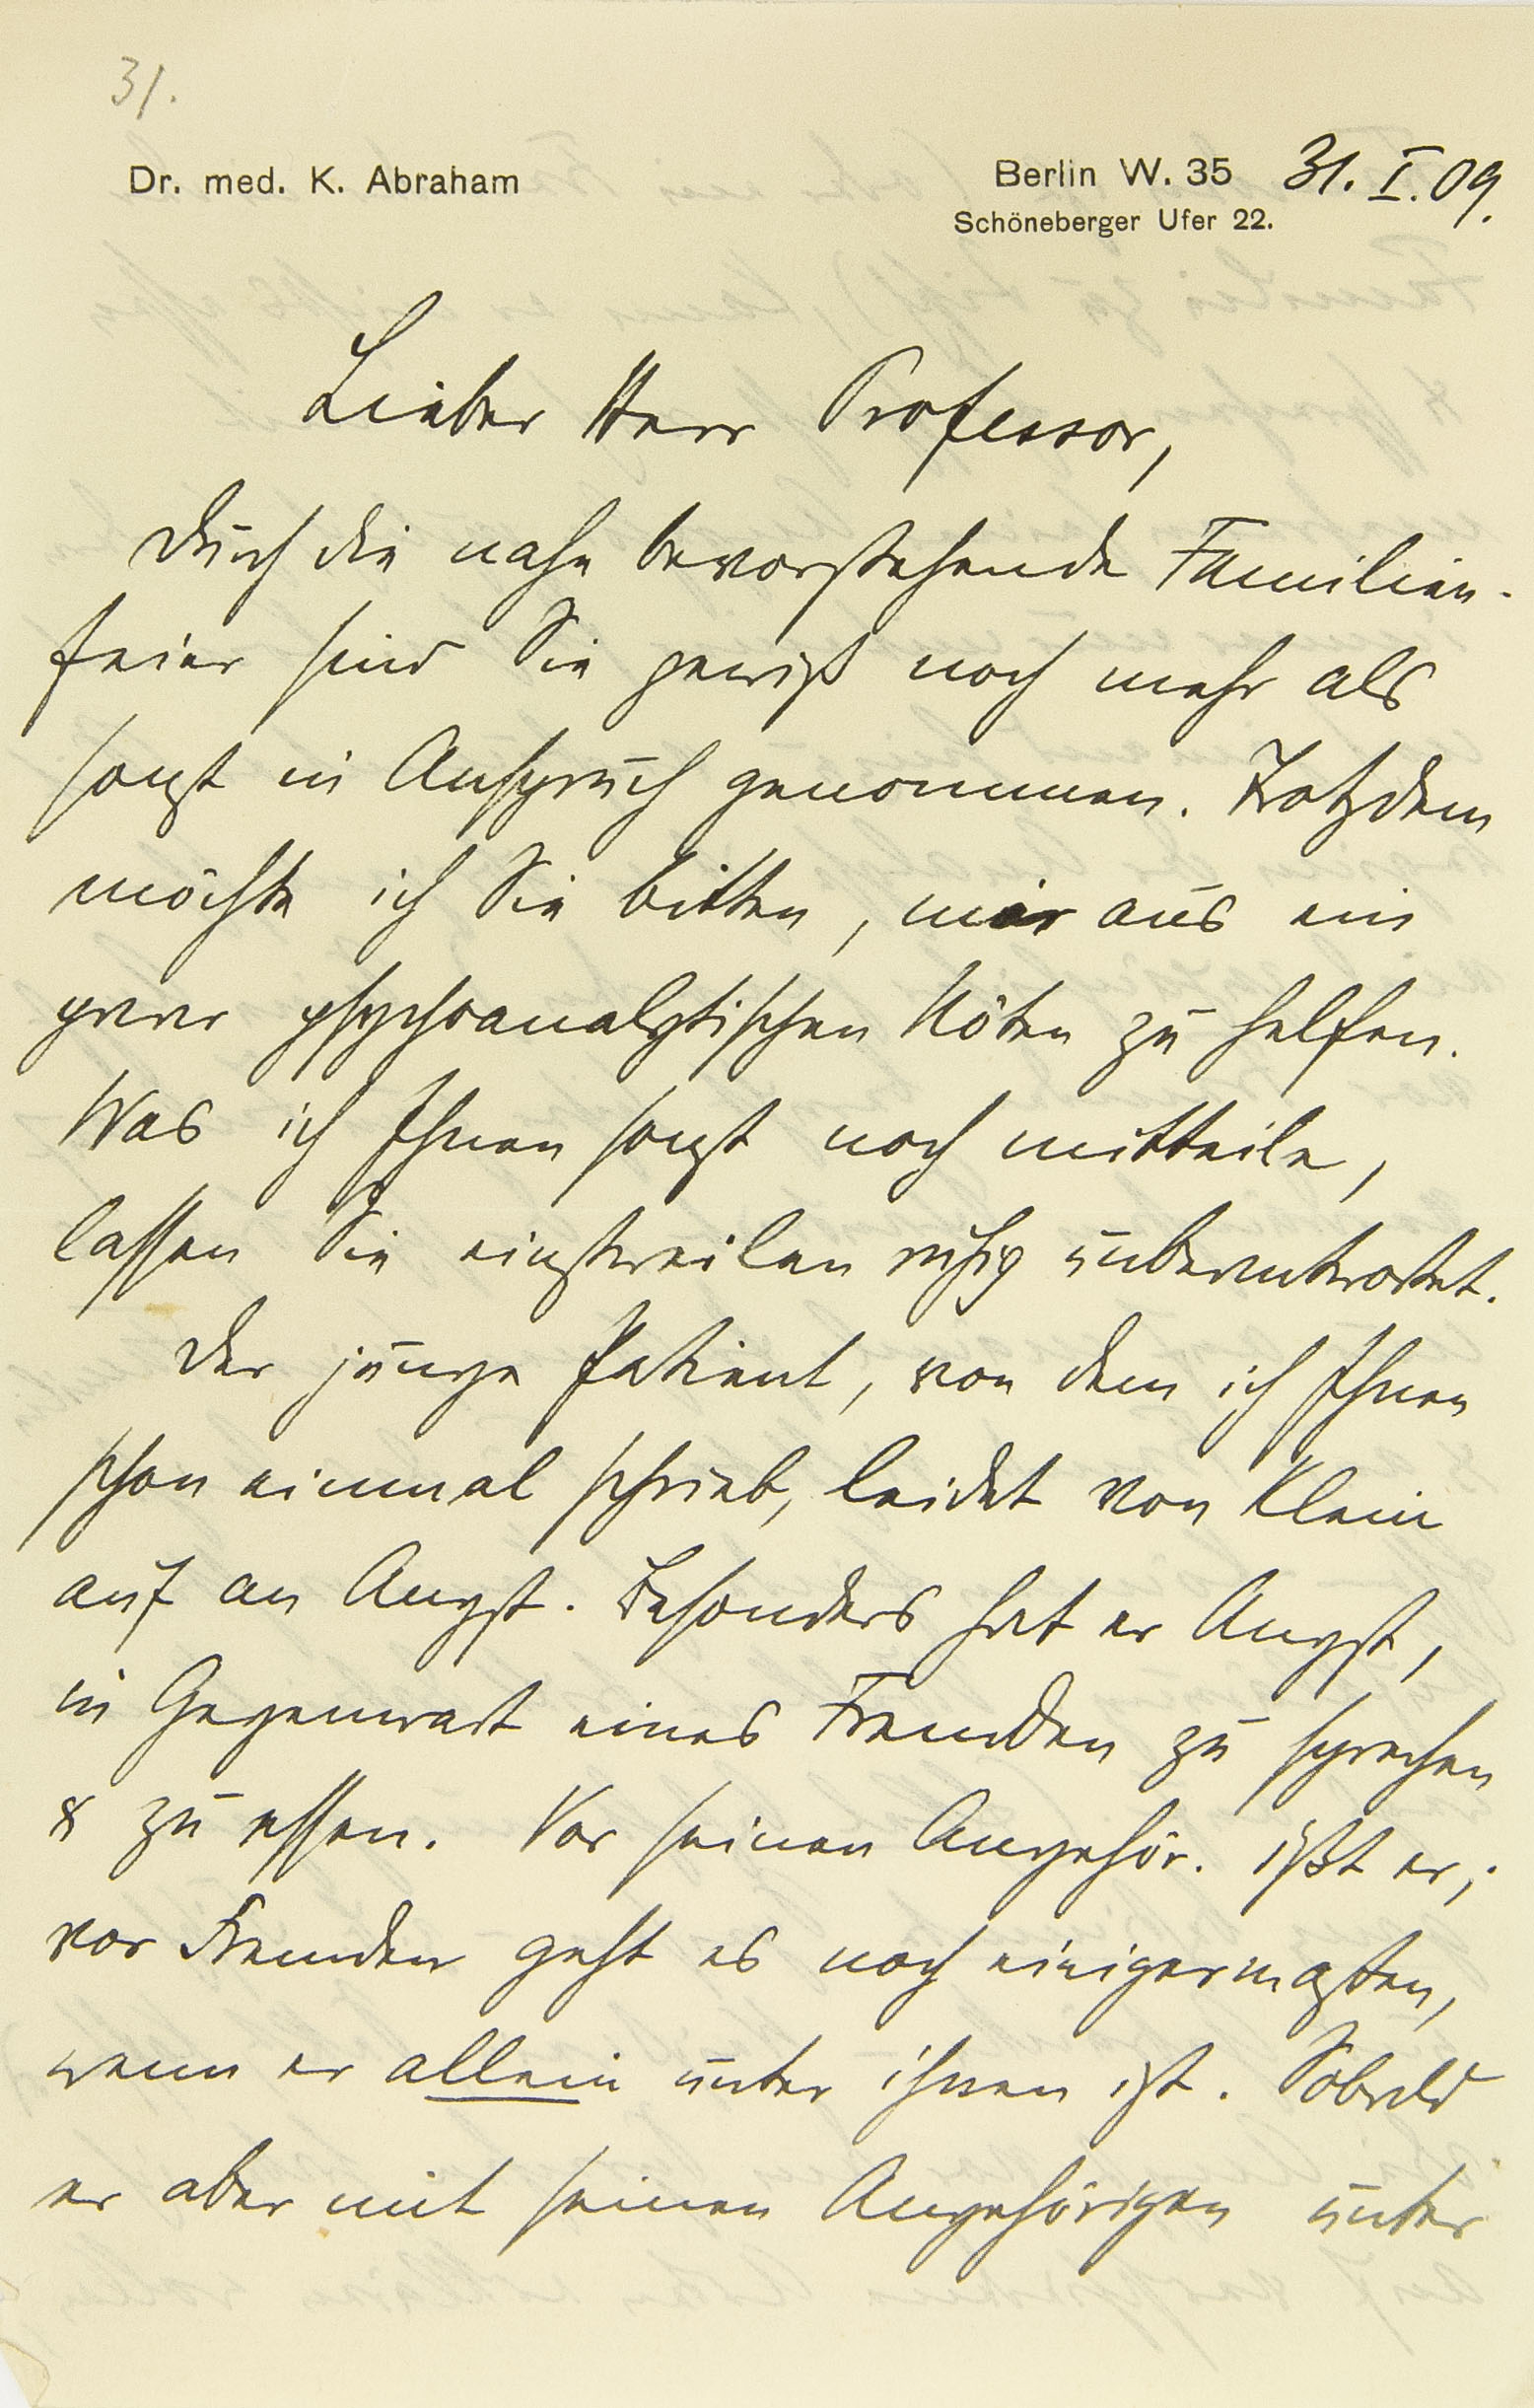 31.
Dr. med. K. Abraham
Berlin W. 35 31. I. 09.
Schöneberger Ufer 22.
Lieber Herr Professor,
Durch die nahe bevorstehende Familien-
feier sind Sie gewiß noch mehr als
sonst in Anspruch genommen. Trotzdem
möchte ich Sie bitten, mir aus ein
paar psychoanalytischen Nöten zu helfen.
Was ich Ihnen sonst noch mitteile,
lassen Sie einstweilen ruhig unbeantwortet.
Der junge Patient, von dem ich Ihnen
schon einmal schrieb, leidet von Klein
auf an Angst. Besonders hat er Angst,
in Gegenwart eines Fremden zu sprechen
& zu essen. Vor seinen Angehör. ißt er;
vor Fremden geht es noch einigermaßen,
wenn er allein unter ihnen ist. Sobald
er aber mit seinen Angehörigen unter